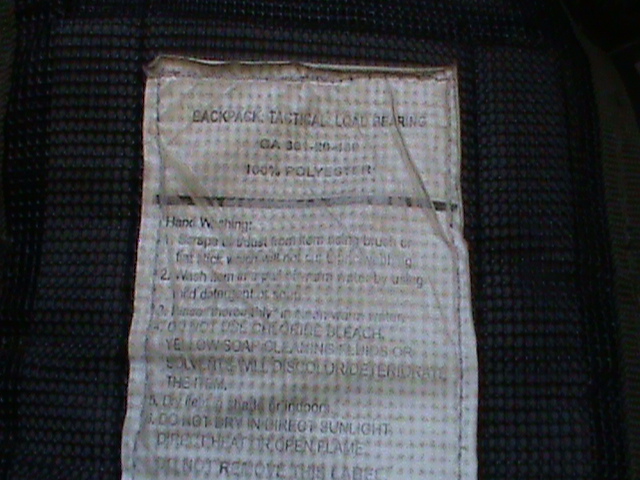 BACKPACK, TACTICAL: LOAD BEARING
100% POLYESTER
Hand Washing:
1. Scrape dust from item using brush or
flat stick which will not cut
2. Wash item in warm water by using
mild detergent or soap
3. Rinse "thoroughly" in warm water.
4. DO NOT USE CHLORIDE BLEACH,
YELLOW SOAP CLEANING FLUIDS OR
SOLVENTS WILL DISCOLOR/DETERIORATE
THE ITEM.
5. Dry item in shade or indoors.
6. DO NOT DRY IN DIRECT SUNLIGHT,
DIRECT HEAT OR OPEN FLAME.
DO NOT REMOVE THIS LABEL